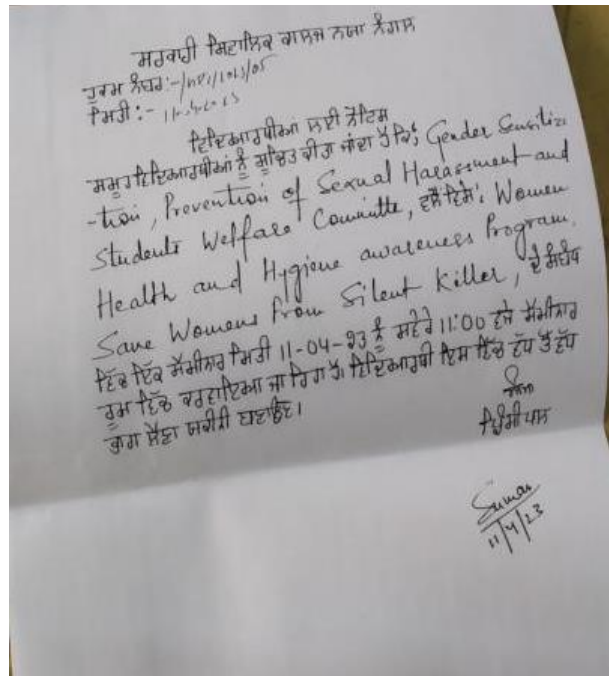 ਸਰਕਾਰੀ ਸ਼ਿਵਾਲਿਕ ਕਾਲਜ ਨਯਾ ਨੰਗਲ
ਹੁਕਮ ਨੰਬਰ:-
ਮਿਤੀ :-
ਵਿਦਿਆਰਥੀਆਂ ਲਈ ਨੋਟਿਸ
ਸਮੂਹ ਵਿਦਿਆਰਥੀਆਂ ਨੂੰ ਸੂਚਿਤ ਕੀਤਾ ਜਾਂਦਾ ਹੈ ਕਿ, Gender Sensitiza
-tion, Prevention of Sexual Harassment and
Students Welfare Committe, ਵਲੋਂ ਵਿਸ਼ੇ: Women
Health and Hygiene awareness Program,
Save Womens from Silent Killer, ਦੇ ਸੰਬੰਧ
ਵਿੱਚ ਇੱਕ ਸੈਮੀਨਾਰ ਮਿਤੀ 11-04-23 ਨੂੰ ਸਵੇਰੇ 11:00 ਵਜੇ ਸੈਮੀਨਾਰ
ਰੂਮ ਵਿੱਚ ਕਰਵਾਇਆ ਜਾ ਰਿਹਾ ਹੈ। ਵਿਦਿਆਰਥੀ ਇਸ ਵਿੱਚ ਵੱਧ ਤੋਂ ਵੱਧ
ਭਾਗ ਲੈਣਾ ਯਕੀਨੀ ਬਣਾਉਣ।
ਪ੍ਰਿੰਸੀਪਾਲ
Suman
11/4/23